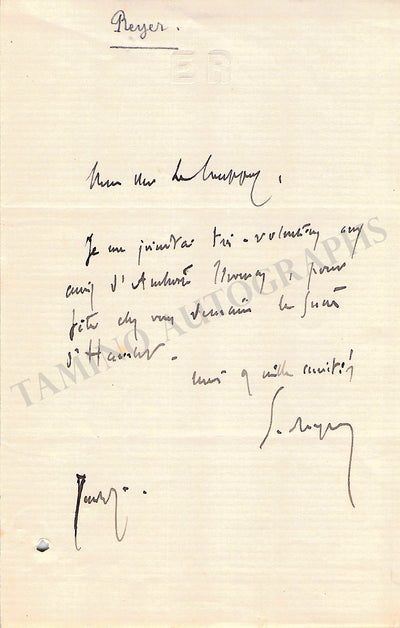 Reyer.
ER
Mon cher
Je me joindrai très volontiers aux
amis d'Ambroise Thomas pour
fêter chez vous demain le succès
d'Hamlet.
mille amitiés
E. Reyer
TAMINO AUTOGRAPHS